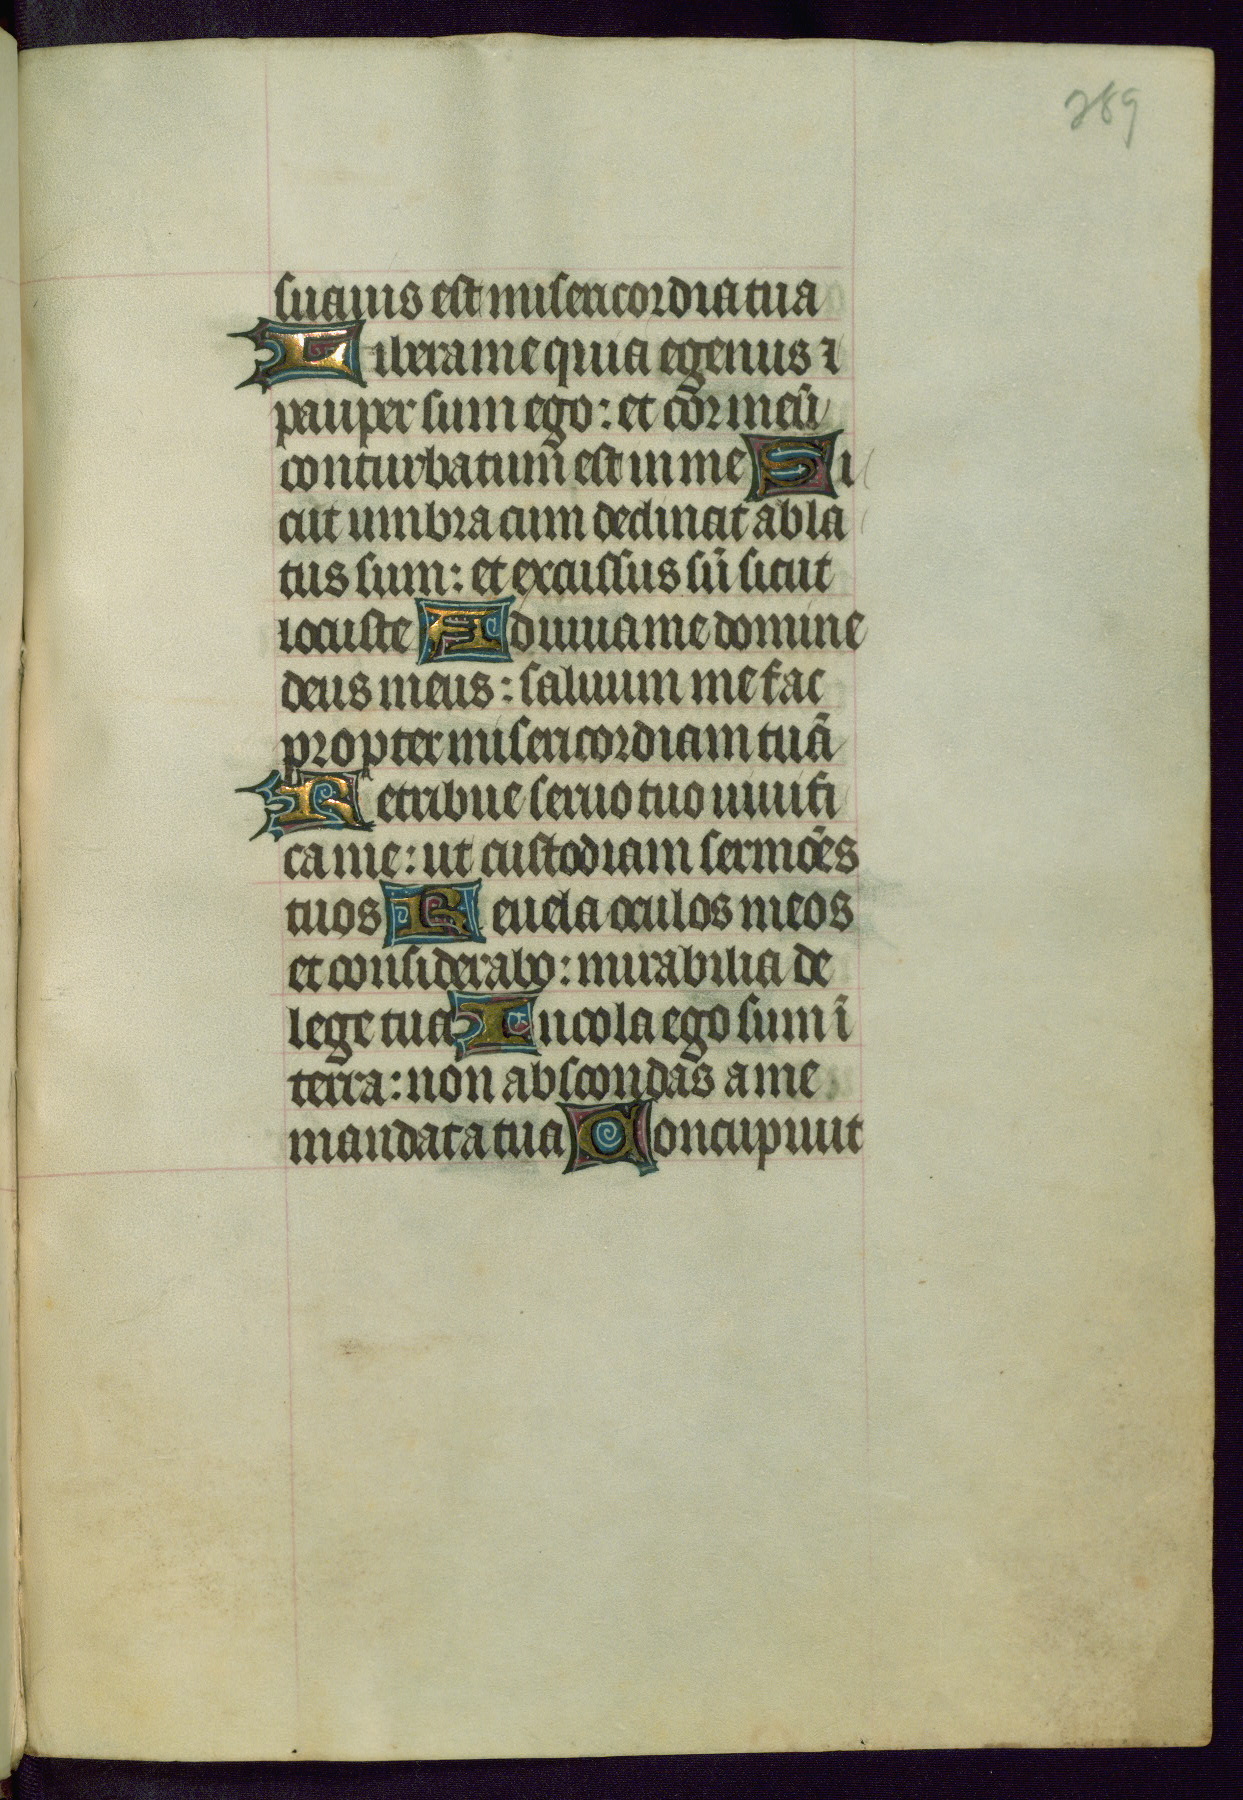 289
suauis est misericordia tua
Libera me quia egenus ⁊
pauper sum ego: et cor meū
conturbatum est in me Si
cut umbra cum declinat abla
tus sum: et excussus sū sicut
locuste Adiuua me domine
deus meus: saluum me fac
propter misericordiam tuā
Retribue seruo tuo uiuifi
ca me: ut custodiam sermōes
tuos Reuela oculos meos
et considerabo: mirabilia de
lege tua Incola ego sum ī
terra: non abscondas a me
mandata tua Concupiuit